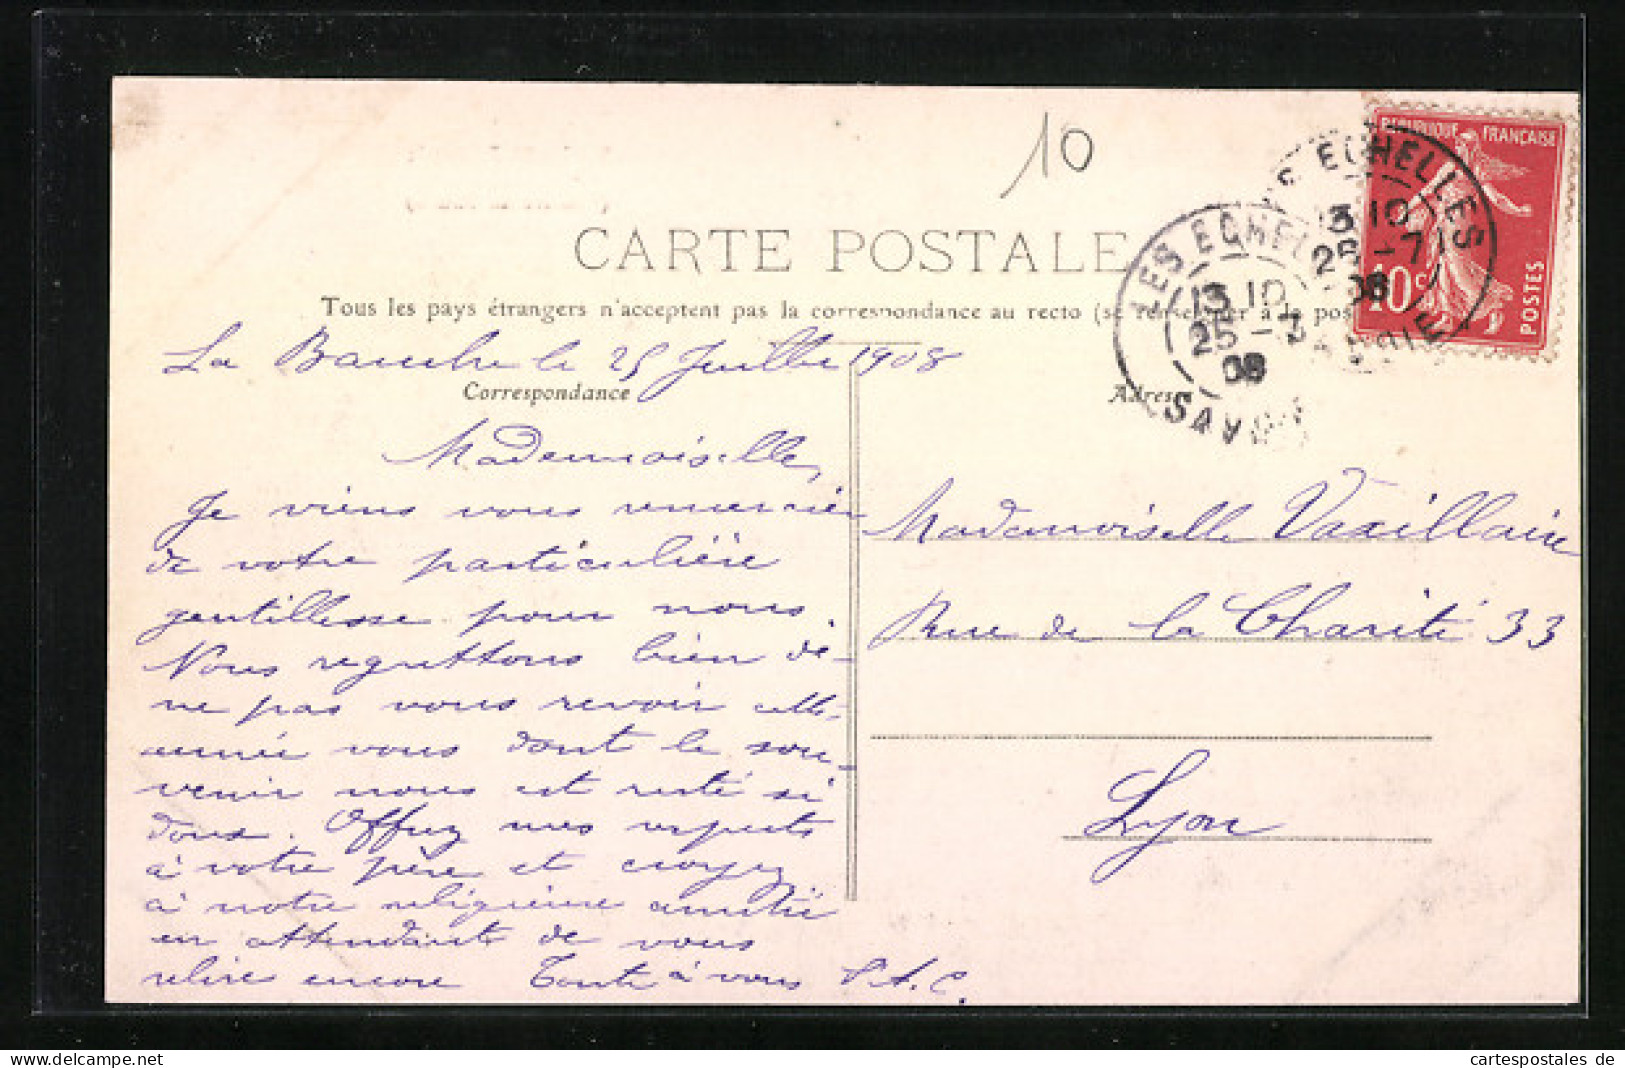 10
RÉPUBLIQUE FRANÇAISE
10c
POSTES
LES ECHELLES
13 10
25 -7
08
SAVOIE
LES ECHELLES
13 10
25 -7
08
SAVOIE
CARTE POSTALE
Tous les pays étrangers n'acceptent pas la correspondance au recto (se renseigner à la pos
La Bauche le 25 Juillet 1908
Correspondance
Adresse
Mademoiselle,
Je viens vous remercier
de votre particulière
gentillesse pour nous.
Nous regrettons bien de
ne pas vous revoir cette
année vous dont le sou-
venir nous est resté si
doux. Offrez mes respects
à votre père et croyez
à notre religieuse amitié
en attendant de vous
relire encore Toute à vous A. C.
Mademoiselle Vaxillaire
Rue de la Charité 33
Lyon
delcampe.net
cartespostales de